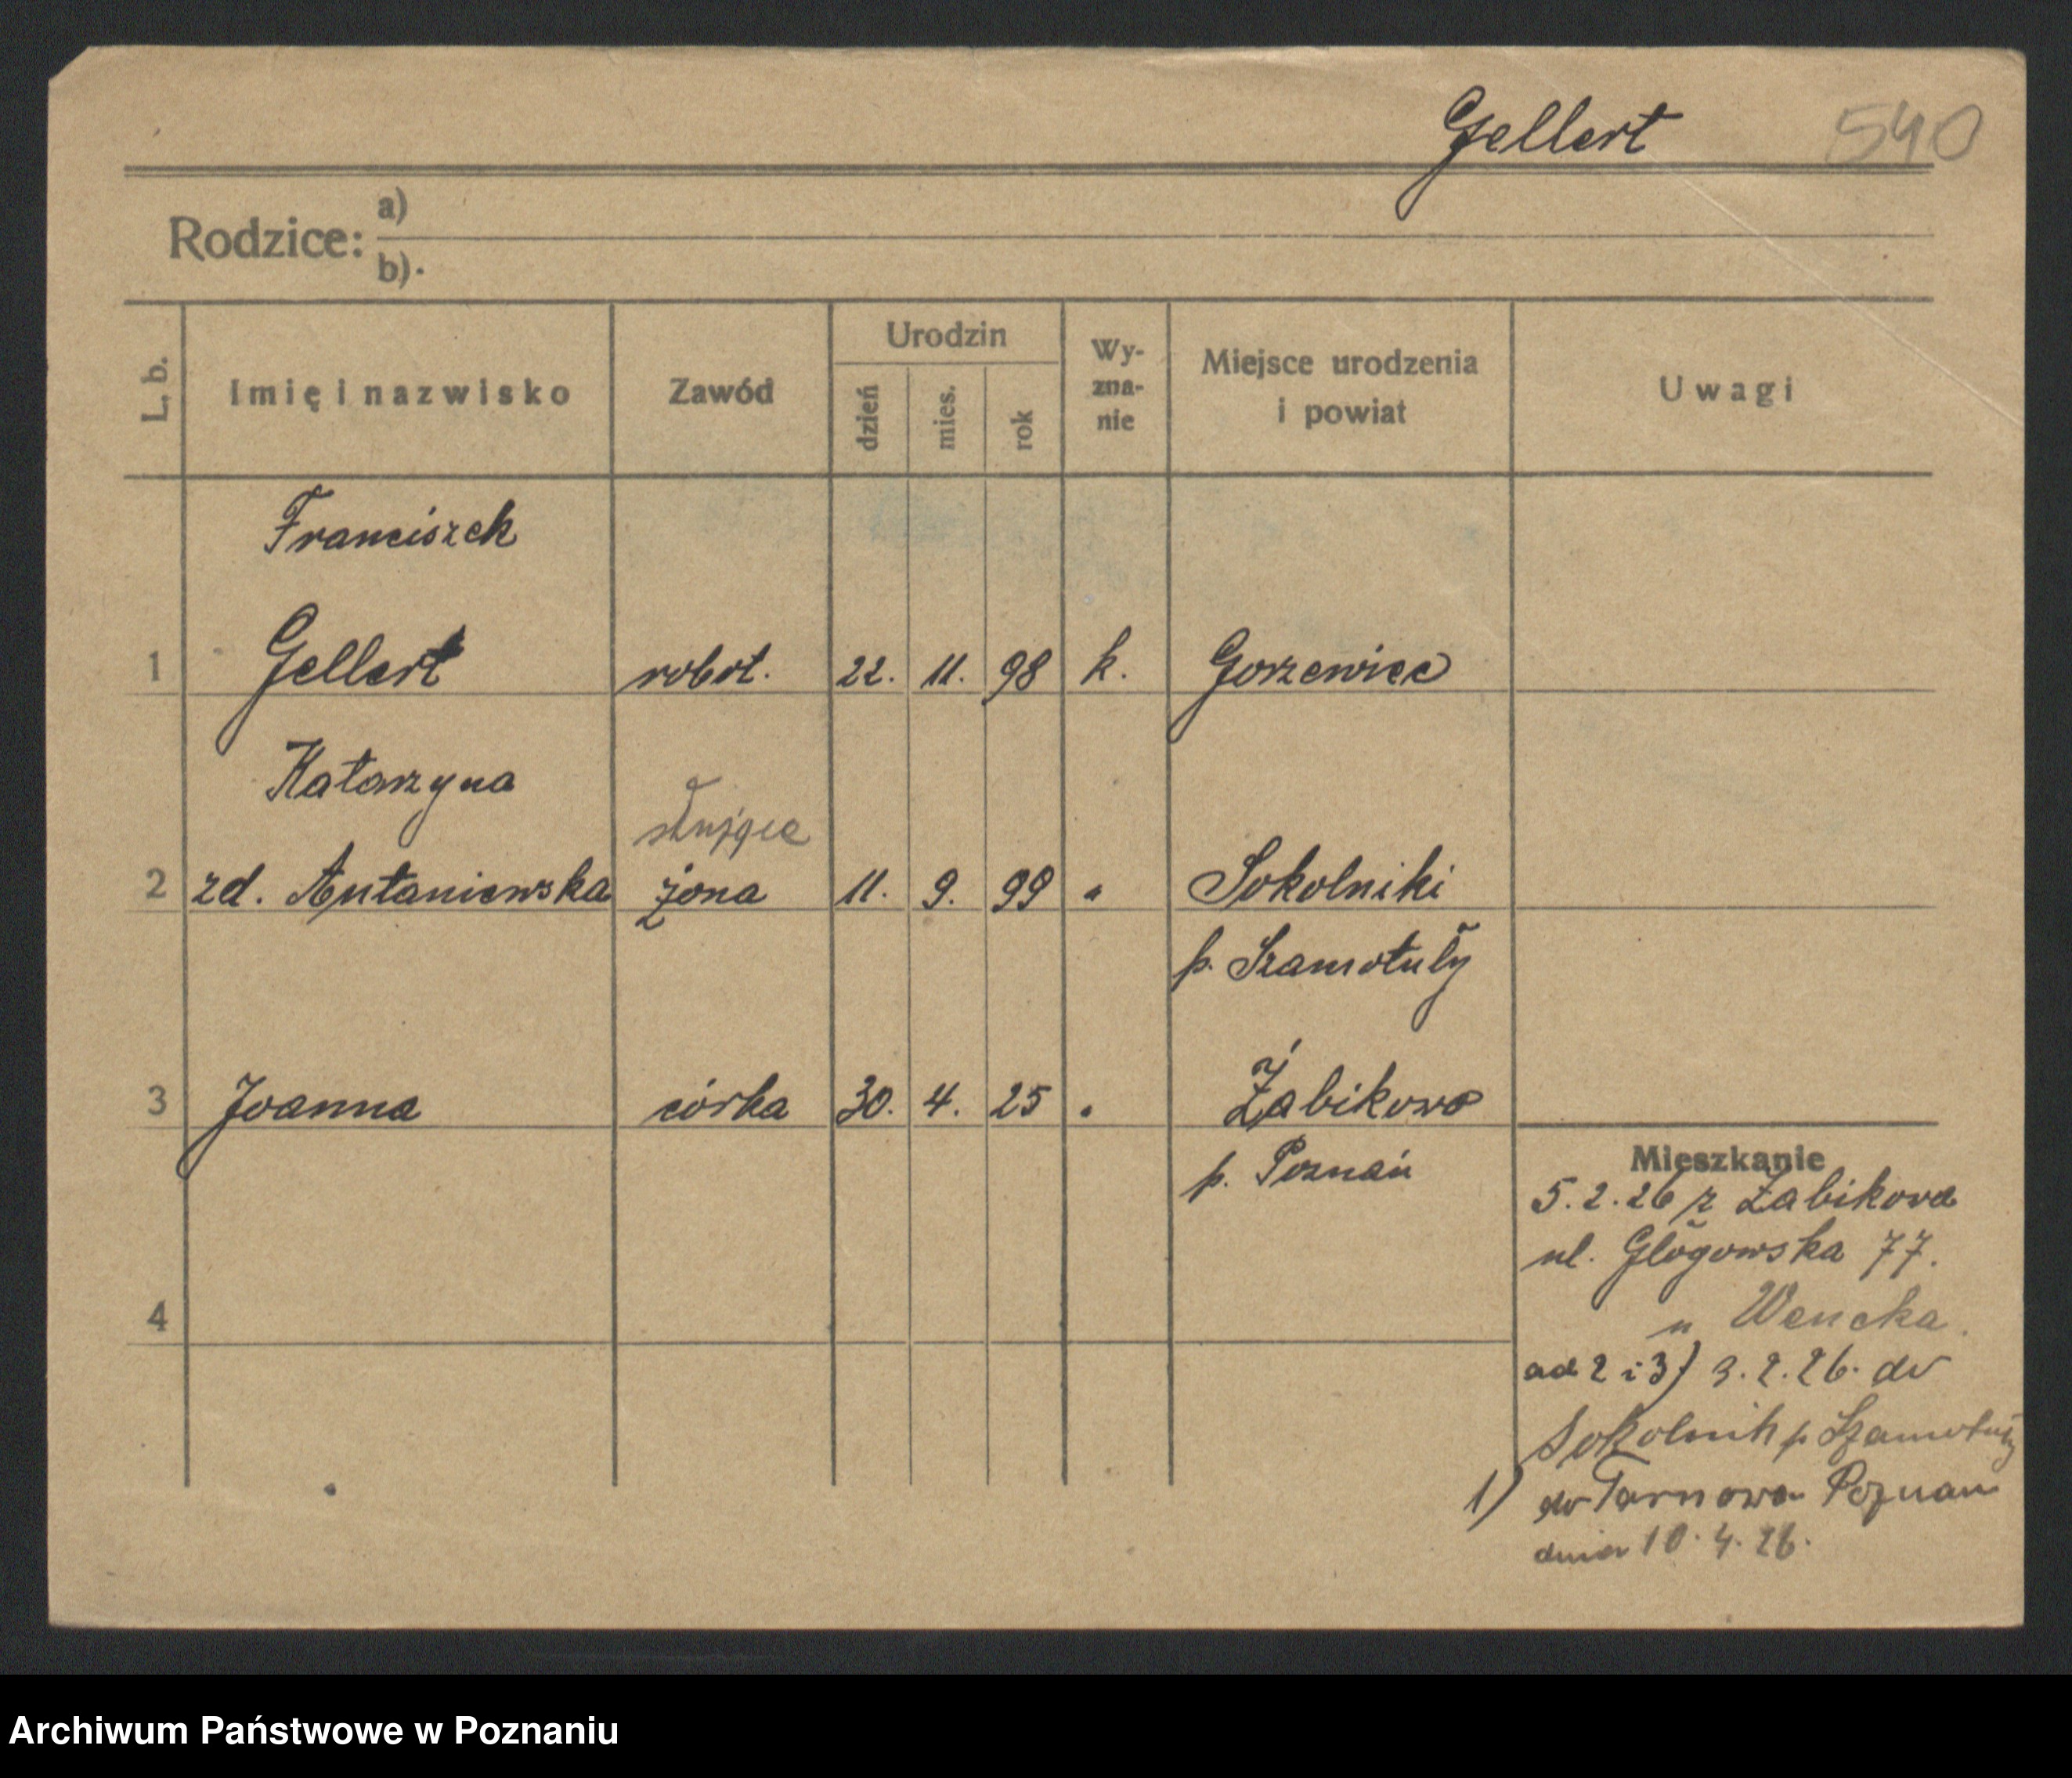 Gellert 540
Rodzice: a)
b).
L. b. Imię i nazwisko Zawód Urodzin dzień mies. rok Wy-zna-nie Miejsce urodzenia i powiat Uwagi
Franciszek
1 Gellert robot. 22. 11. 98 k. Gorzewice
Katarzyna
służąca
2 zd. Antaniewska żona 11. 9. 99 " Sokolniki
p. Szamotuły
3 Joanna córka 30. 4. 25 " Żabikowo
p. Poznań
4
Mieszkanie
5.2.26 z Żabikowa
ul. Głogowska 77.
u Wencka.
ad 2 i 3) 3.2.26. do
Sokolnik p Szamotuły
1) do Tarnowa Poznań
dnia 10.4.26.
Archiwum Państwowe w Poznaniu